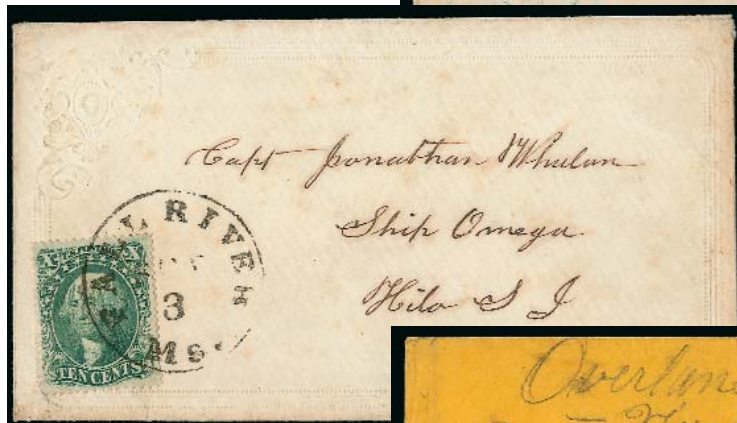 Capt Jonathan Whalon
Ship Omega
Hilo S I
FALL RIVER
3
Ms.
X X
TEN CENTS
Overlan